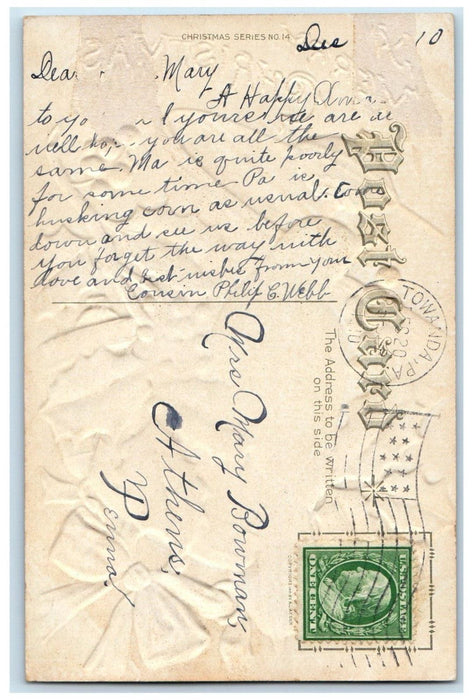 CHRISTMAS SERIES NO. 14
Dec 10
Dea Mary
A Happy Xma
to yo l yours we are
well hop you are all the
same. Ma is quite poorly
for some time Pa is
husking corn as usual. Come
down and see us before
you forget the way with
love and best wishes from your
Cousin Philip C. Webb
Post Card
The Address to be written
on this side
TOWANDA, PA.
Mrs Mary Bowman,
Athens,
Penna
U.S. POSTAGE
ONE CENT